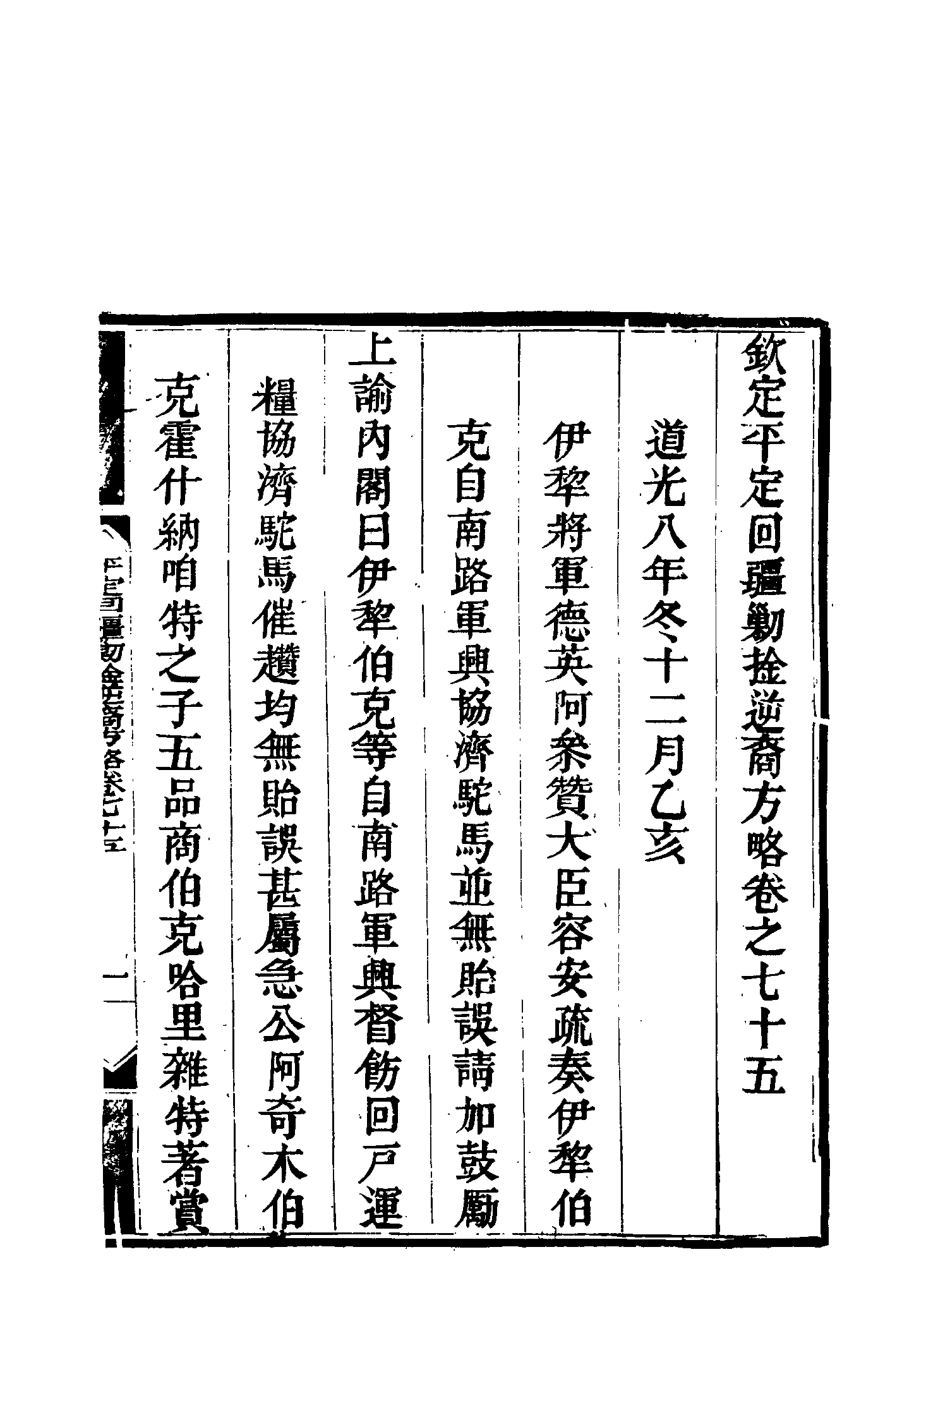 欽定平定回疆勦捦逆裔方略卷之七十五
道光八年冬十二月乙亥
伊犂將軍德英阿叅贊大臣容安疏奏伊犂伯
克自南路軍興協濟駝馬並無貽誤請加鼓勵
上諭內閣曰伊犂伯克等自南路軍興督飭回戸運
糧協濟駝馬催趲均無貽誤甚屬急公阿奇木伯
克霍什納咱特之子五品商伯克哈里雜特著賞
平定回疆勦捦逆裔方略卷七十五
一